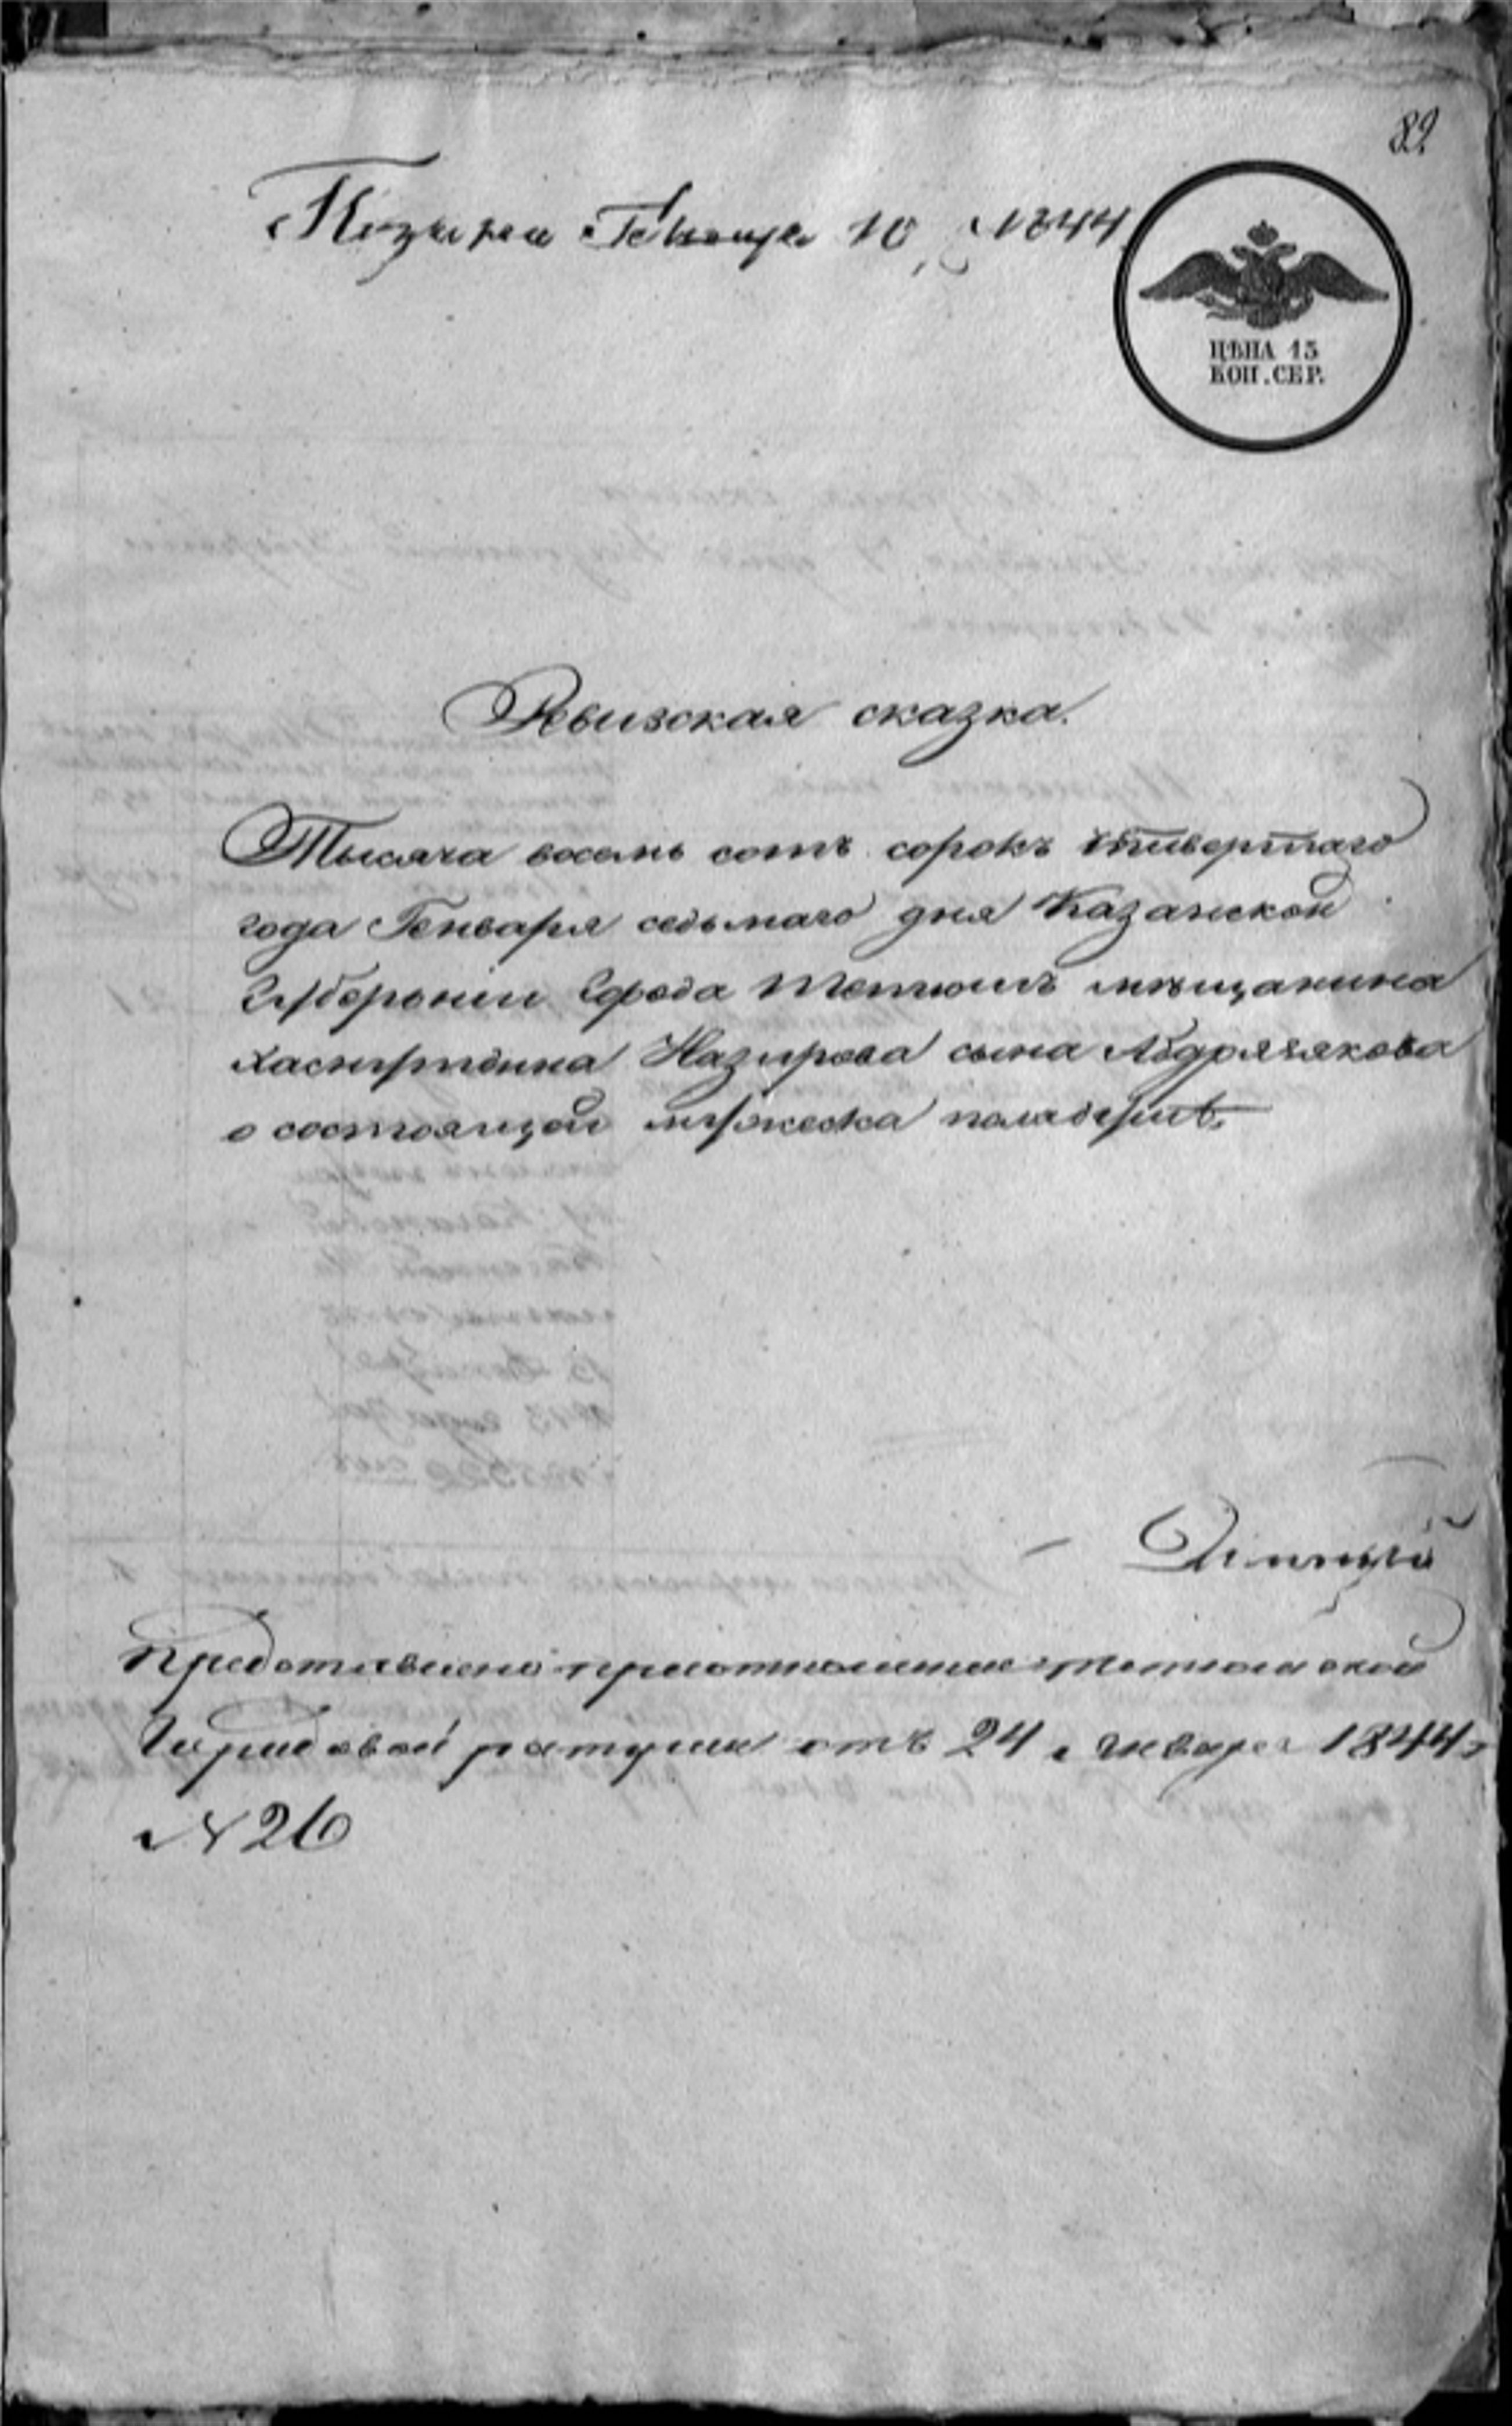 82
Генваря 10, 1844
ЦѢНА 15
КОП. СЕР.
Рвизская сказка.
Тысяча восемь сотъ сорокъ четвертаго
года Генваря седьмаго дня Казанской
Губерніи Города Тетюшъ мѣщанина
Назирова сына
о состоящей мужеска пола душѣ.
Представлена при отношеніи Тетюшской
Городовой ратуши отъ 24 генваря 1844
№ 26